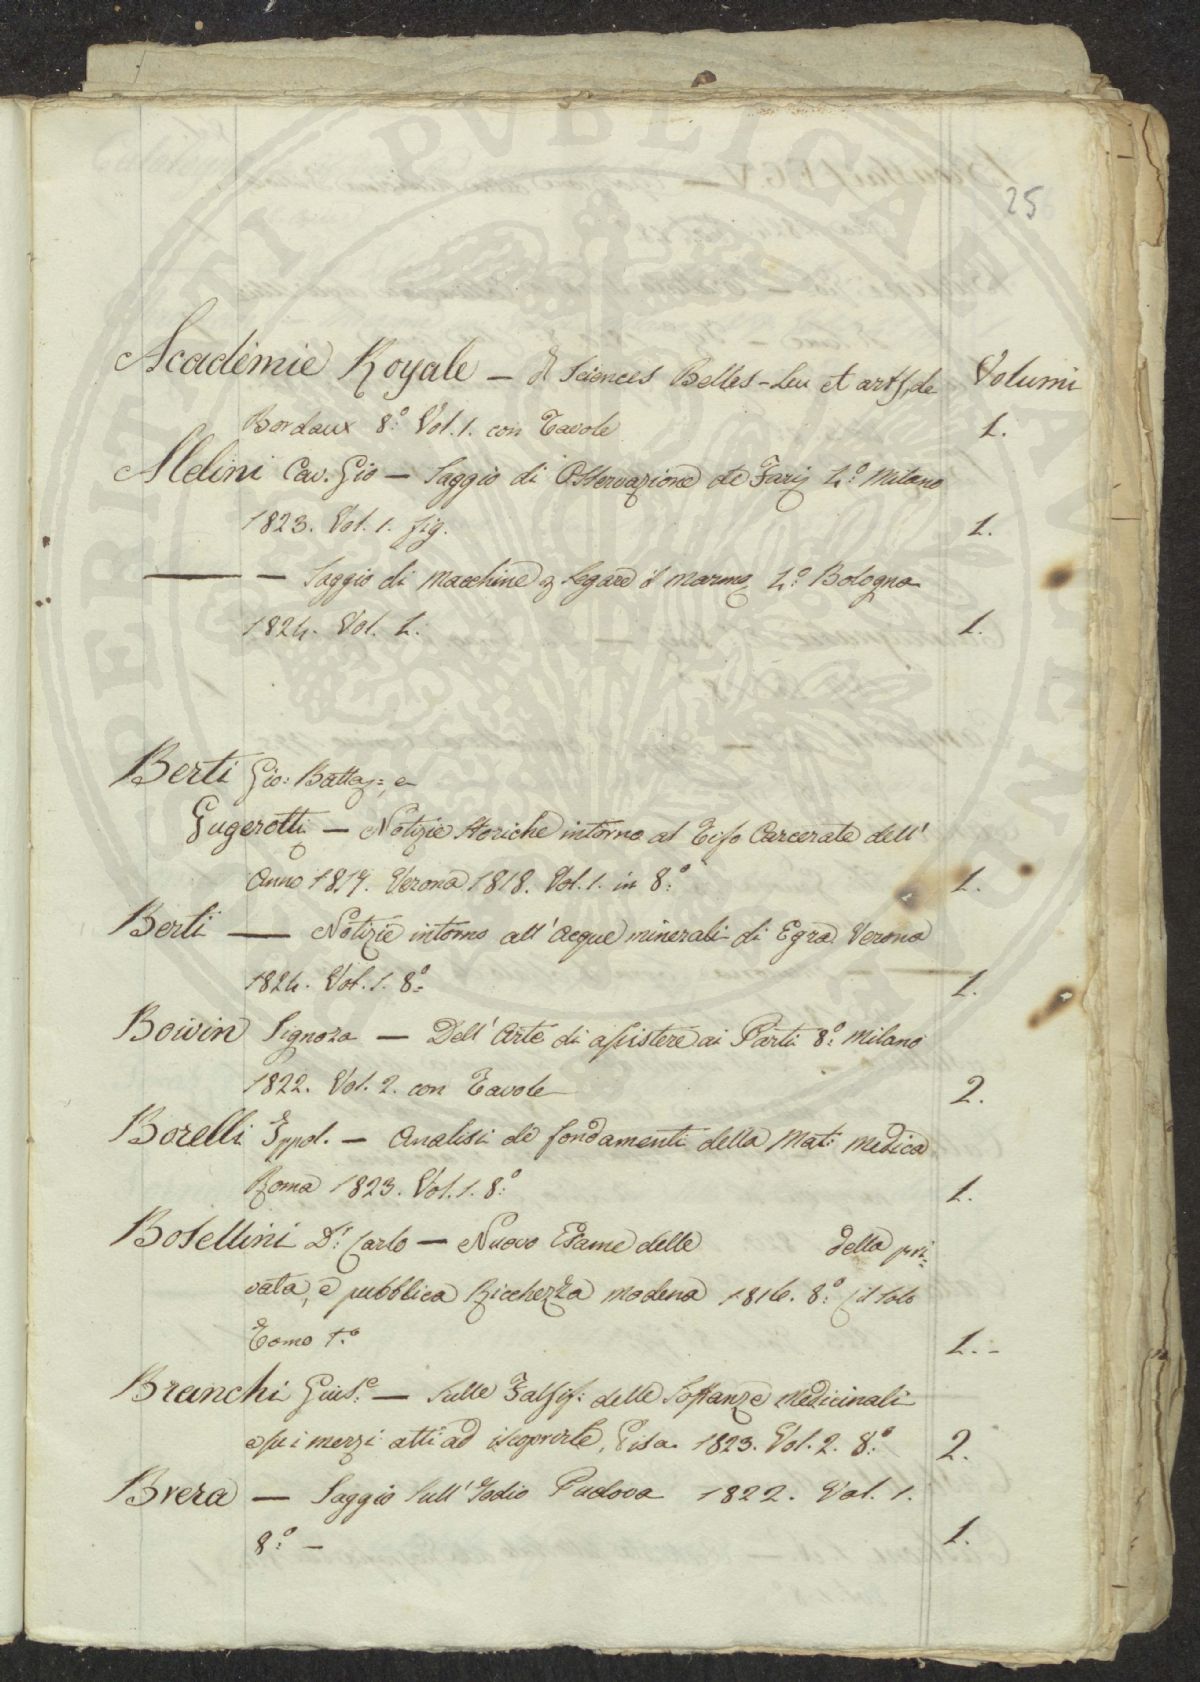 25
Académie Royale – d Sciences Belles-Leu et arts, de Volumi
Bordaux 8.º Vol. 1. con Tavole 1.
Aldini Cav. Gio – Saggio di Osservazione de Farij 4.º Milano
1823. Vol. 1. fig. 1.
——— – Saggio di Macchine p segare il marmo 4.º Bologna
1824. Vol. 1. 1.
Berti Gio: Batta, e
Gugerotti – Notizie storiche intorno al Tifo Carcerate dell'
Anno 1817. Verona 1818. Vol. 1. in 8.º 1.
Berti — Notizie intorno all' Acque minerali di Egra. Verona
1824. Vol. 1. 8.º 1.
Boivin Signora – Dell' Arte di assistere ai Parti 8.º Milano
1822. Vol. 2. con Tavole 2.
Borelli Ippol. – Analisi de fondamenti della Mat: Medica
Roma 1823. Vol. 1. 8.º 1.
Bosellini D.r Carlo – Nuovo Esame delle della pri=
vata, e pubblica Ricchezza Modena 1816. 8.º il solo
Tomo 1.º 1. -
Branchi Gius.e – Sulle Falsif: delle Sostanze Medicinali
e su i mezzi atti ad iscoprirle, Pisa. 1823. Vol. 2. 8.º 2.
Brera – Saggio sull' Iodio Padova 1822. Vol. 1.
8.º – 1.